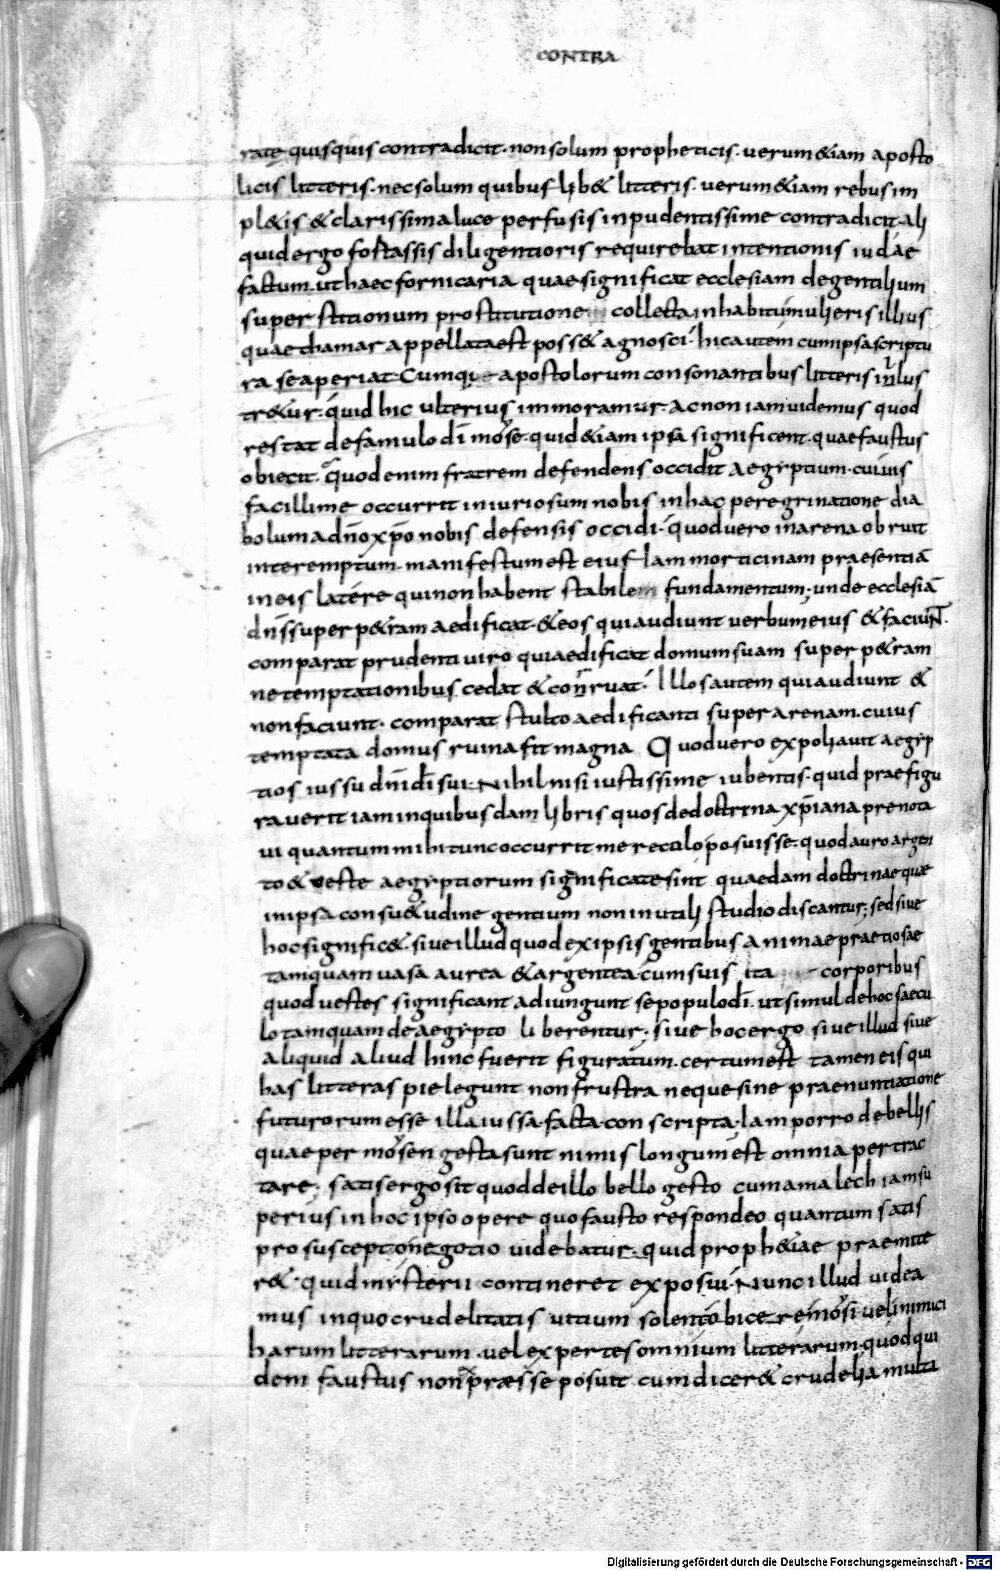 CONTRA
rate quisquis contradicit · non solum propheticis · uerum &iam aposto
licis litteris · nec solum quibuslib& litteris · uerum &iam rebus im
pl&is & clarissima luce perfusis inpudentissime contradicit · ali
quid ergo fostassis diligentioris requirebat intentionis iudae
factum · ut haec fornicaria quae significat ecclesiam de gentilium
superstitionum prostitutione collecta in habitu mulieris illius
quae thamar appellata est poss& agnosci · hic autem cum ipsa scriptu
ra se aperiat · Cumque apostolorum consonantibus litteris inlus
tr&ur · quid hic ulterius immoramur · ac non iam uidemus quod
restat de famulo dī moȳse · quid &iam ipsa significent · quae faustus
obiecit · quod enim fratrem defendens occidit aegẏptium · cuiuis
facillime occurrit iniuriosum nobis in hac peregrinatione dia
bolum a dn̄o xp̄o nobis defensis occidi · quod uero in arena obruit
interemptum · manifestum est eius iam morticinam praesentiā
in eis latere qui non habent stabilem fundamentum ; unde ecclesiā
dn̄s super p&ram aedificat · & eos qui audiunt uerbum eius & faciunt ·
comparat prudenti uiro qui aedificat domum suam super p&ram
ne temptationibus cedat & corruat · Illos autem qui audiunt &
non faciunt · comparat stulto aedificanti super arenam · cuius
temptata domus ruina fit magna Quod uero expoliauit aegẏp
tios iussu dn̄i dī sui · Nihil nisi iustissime iubentis · quid praefigu
rauerit iam in quibusdam libris quos de doctrina xp̄iana prenota
ui quantum mihi tunc occurrit me recilo posuisse · quod auro argen
to & ueste aegẏptiorum significatae sint quaedam doctrinae quae
in ipsa consu&udine gentium non inutili studio discantur ; sed siue
hoc signific& · siue illud quod ex ipsis gentibus animae praetiosae
tamquam uasa aurea & argentea cum suis ita corporibus
quod uestes significant adiungunt se populo dī · ut simul de hoc saecu
lo tamquam de aegẏpto liberentur · siue hoc ergo siue illud siue
aliquid aliud hinc fuerit figuratum · certum est tamen eis qui
has litteras pie legunt non frustra neque sine praenuntiatione
futurorum esse illa iussa · facta · conscripta · Iam porro de bellis
quae per moȳsen gesta sunt nimis longum est omnia pertrac
tare ; satis ergo sit quod de illo bello gesto cum amalech iam su
perius in hoc ipso opere quo fausto respondeo quantum satis
pro suscepto negotio uidebatur · quid proph&iae praemitte
r& · quid mẏsterii contineret exposui · Nunc illud uidea
mus in quo crudelitatis uitium solent obicere moȳsi uel inimici
harum litterarum · uel expertes omnium litterarum · quod qui
dem faustus non expraesse posuit cum dicer& crudelia multa